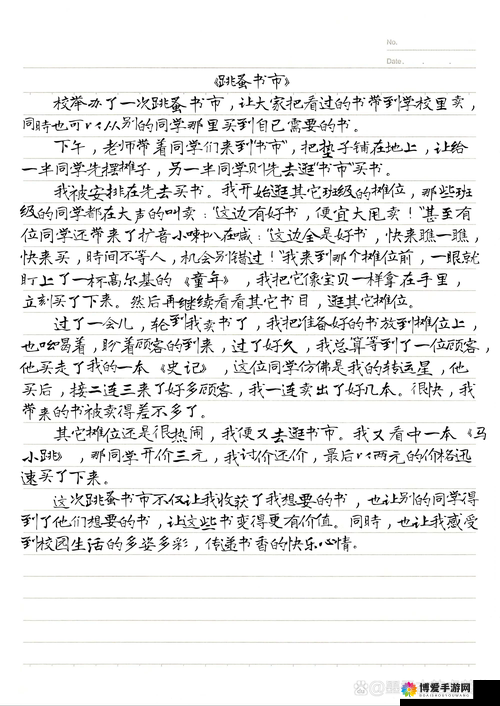 No.
Date.
《跳蚤书市》
校举办了一次跳蚤书市，让大家把看过的书带到学校里卖，
同时也可以从别的同学那里买到自己需要的书。
下午，老师带着同学们来到"书市"，把垫子铺在地上，让给
一半同学先摆摊子，另一半同学则先去逛"书市"买书。
我被安排在先去买书。我开始逛其它班级的摊位，那些班
级的同学都在大声的叫卖："这边有好书，便宜大甩卖！"甚至有
位同学还带来了扩音小喇叭在喊："这边全是好书，快来瞧一瞧，
快来买，时间不等人，机会别错过！"我来到那个摊位前，一眼就
盯上了一杯高尔基的《童年》，我把它像宝贝一样拿在手里，
立刻买了下来。然后再继续看看其它书目，逛其它摊位。
过了一会儿，轮到我卖书了，我把准备好的书放到摊位上，
也吆喝着，盼着顾客的到来，过了好久，我总算等到了一位顾客，
他买走了我的一本《史记》，这位同学仿佛是我的转运星，他
买后，接二连三来了好多顾客，我一连卖出了好几本。很快，我
带来的书被卖得差不多了。
其它摊位还是很热闹，我便又去逛书市。我又看中一本《马
小跳》，那同学开价三元，我讨价还价，最后以两元的价格迅
速买了下来。
这次跳蚤书市不仅让我收获了我想要的书，也让别的同学得
到了他们想要的书，让这些书变得更有价值。同时，也让我感受
到校园生活的多姿多彩，传递书香的快乐心情。
博爱手游网
BOAISHOUYOUWANG